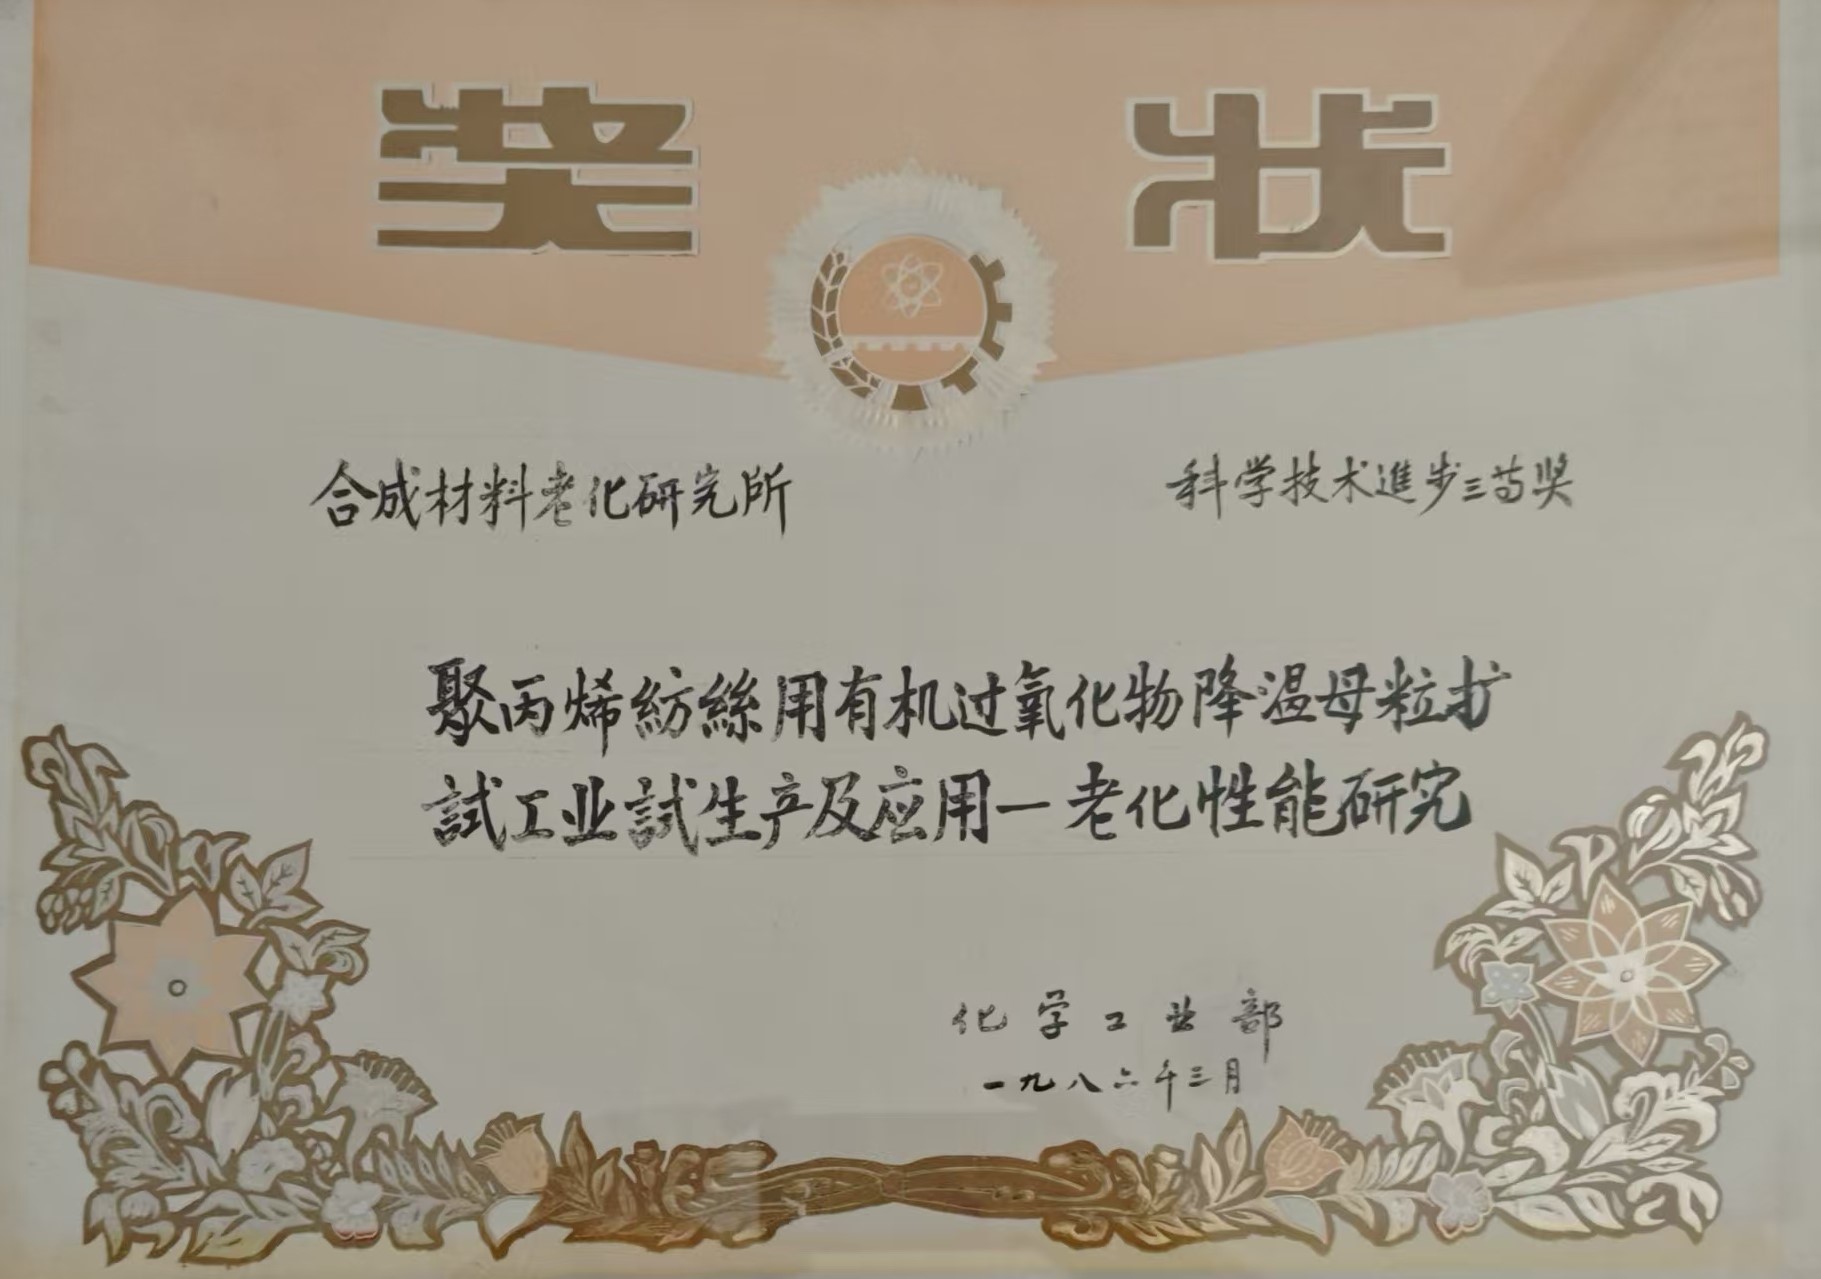 奖状
合成材料老化研究所
科学技术進步三等奖
聚丙烯紡絲用有机过氧化物降温母粒扩
試工业試生产及应用一老化性能研究
化学工业部
一九八六年三月